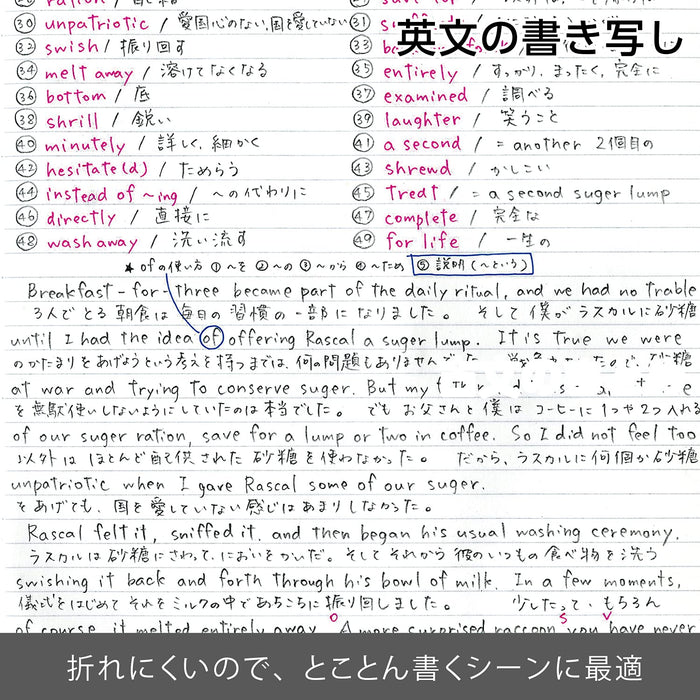 英文の書き写し
㉚ unpatriotic / 愛国心のない、国を愛していない
㉜ swish / 振り回す
㉞ melt away / 溶けてなくなる
㉟ entirely / すっかり、まったく、完全に
㊱ bottom / 底
㊲ examined / 調べる
㊳ shrill / 鋭い
㊴ laughter / 笑うこと
㊵ minutely / 詳しく、細かく
㊶ a second / = another 2個目の
㊷ hesitate(d) / ためらう
㊸ shrewd / かしこい
㊹ instead of ~ing / ~の代わりに
㊺ Treat / = a second suger lump
㊻ directly / 直接に
㊼ complete / 完全な
㊽ wash away / 洗い流す
㊾ for life / 一生の
★ ofの使い方 ①~を ②~の ③~から ④~ため ⑤説明(~という)
Breakfast-for-three became part of the daily ritual, and we had no trable
3人でとる朝食は毎日の習慣の一部になりました。 そして僕がラスカルに砂糖
until I had the idea of offering Rascal a suger lump. It is true we were
のかたまりをあげようという考えを持つまでは、何の問題もありませんでした 砂糖
at war and trying to conserve suger. But my
を無駄使いしないようにしていたのは本当でした。 でもお父さんと僕はコーヒーに1つや2つ入れる
of our suger ration, save for a lump or two in coffee. So I did not feel too
以外はほとんど配給された砂糖を使わなかった。 だから、ラスカルに何個か砂糖
unpatriotic when I gave Rascal some of our suger.
をあげても、国を愛していない感じはあまりしなかった。
Rascal felt it, sniffed it, and then began his usual washing ceremony,
ラスカルは砂糖にさわって、においをかいだ。そしてそれから彼のいつもの食べ物を洗う
swishing it back and forth through his bowl of milk. In a few moments,
儀式をはじめてそれをミルクの中であちこちに振り回しました。 少したって、もちろん
of course, it melted entirely away. A more surprised raccoon you have never
折れにくいので、とことん書くシーンに最適